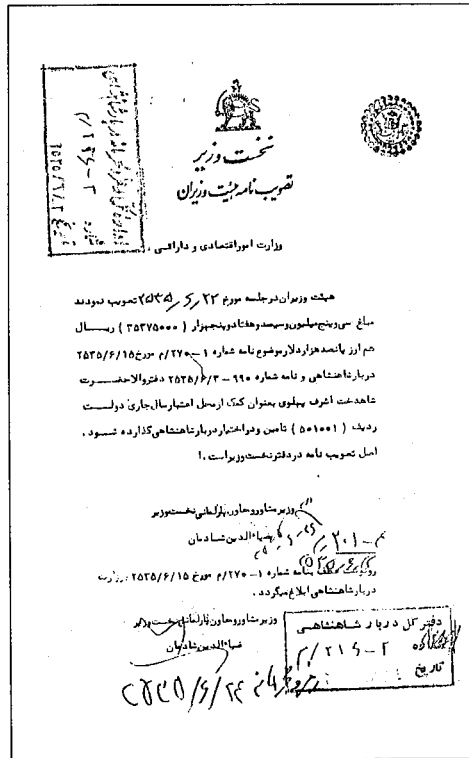 نخست وزیر
تصویب نامه هیئت وزیران
وزارت امور اقتصادی و دارائی
هیئت وزیران در جلسه مورخ ۲۵۳۵/۶/۲۲ تصویب نمودند
مبلغ سی و پنج میلیون و سیصد و هفتاد و پنجهزار ( ۳۵۳۷۵۰۰۰ ) ریال
هم ارز پانصد هزار دلار موضوع نامه شماره ۱-۲۷۰/م مورخ ۲۵۳۵/۶/۱۵
دربار شاهنشاهی و نامه شماره ۹۹۰-۲۵۳۵/۶/۳ دفتر والاحضرت
شاهدخت اشرف پهلوی بعنوان کمک از محل اعتبار سال جاری دولت
ردیف ( ۵۰۱۰۰۱ ) تامین و در اختیار دربار شاهنشاهی گذارده شود .
اصل تصویب نامه در دفتر نخست وزیر است .
وزیر مشاور و معاون پارلمانی نخست وزیر
ضیاءالدین شادمان
نامه شماره ۱-۲۷۰/م مورخ ۲۵۳۵/۶/۱۵ وزارت
دربار شاهنشاهی ابلاغ میگردد .
وزیر مشاور و معاون پارلمانی نخست وزیر
ضیاءالدین شادمان
دفتر کل دربار شاهنشاهی
۲-۲۱۶/م
تاریخ
۲۵۳۵/۶/۲۴